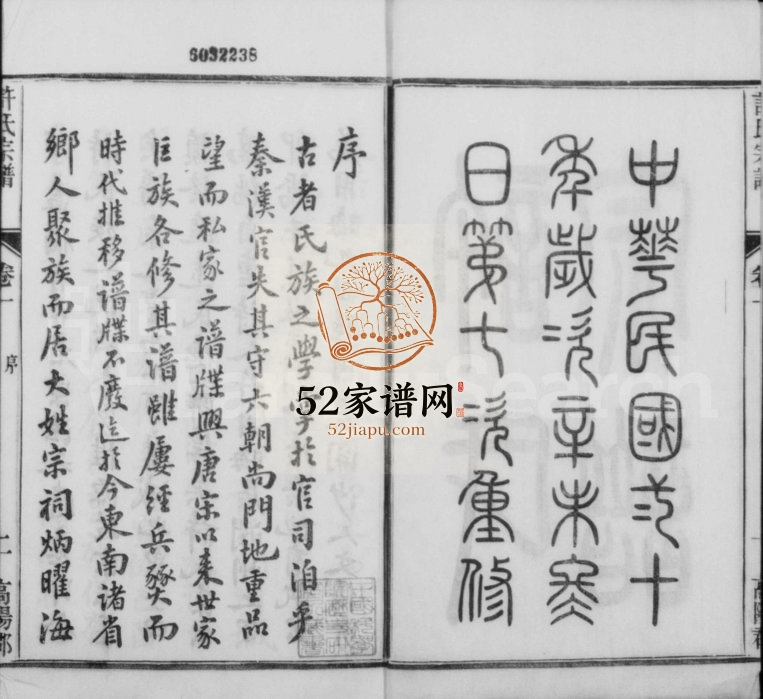 6032238
中華民國弍十
年歲次辛未冬
日第七次重修
序
古者氏族之學於官司洎乎
秦漢官失其守六朝尚門地重品
望而私家之譜牒興唐宋以来世家
巨族各修其譜雖屢經兵燹而
時代推移譜牒不廢迄於今東南諸省
鄉人聚族而居大姓宗祠炳曜海
許氏宗譜 卷一 序 二 高陽郡
52家谱网
52jiapu.com